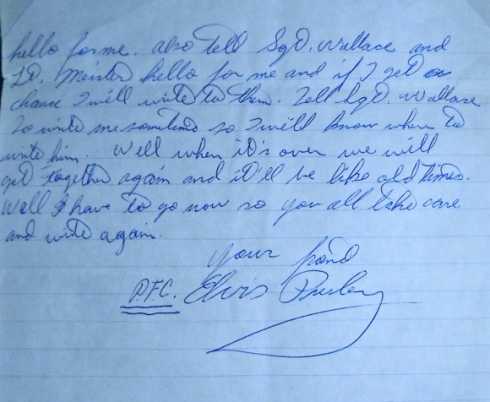 hello for me. also tell Sgt. Wallace and
Lt. Meister hello for me and if I get a
chance I will write to them. Tell Sgt. Wallace
to write me sometime so I will know where to
write him. Well when it's over we will
get together again and it'll be like old times.
Well I have to go now so you all take care
and write again.
your friend
PFC. Elvis Presley